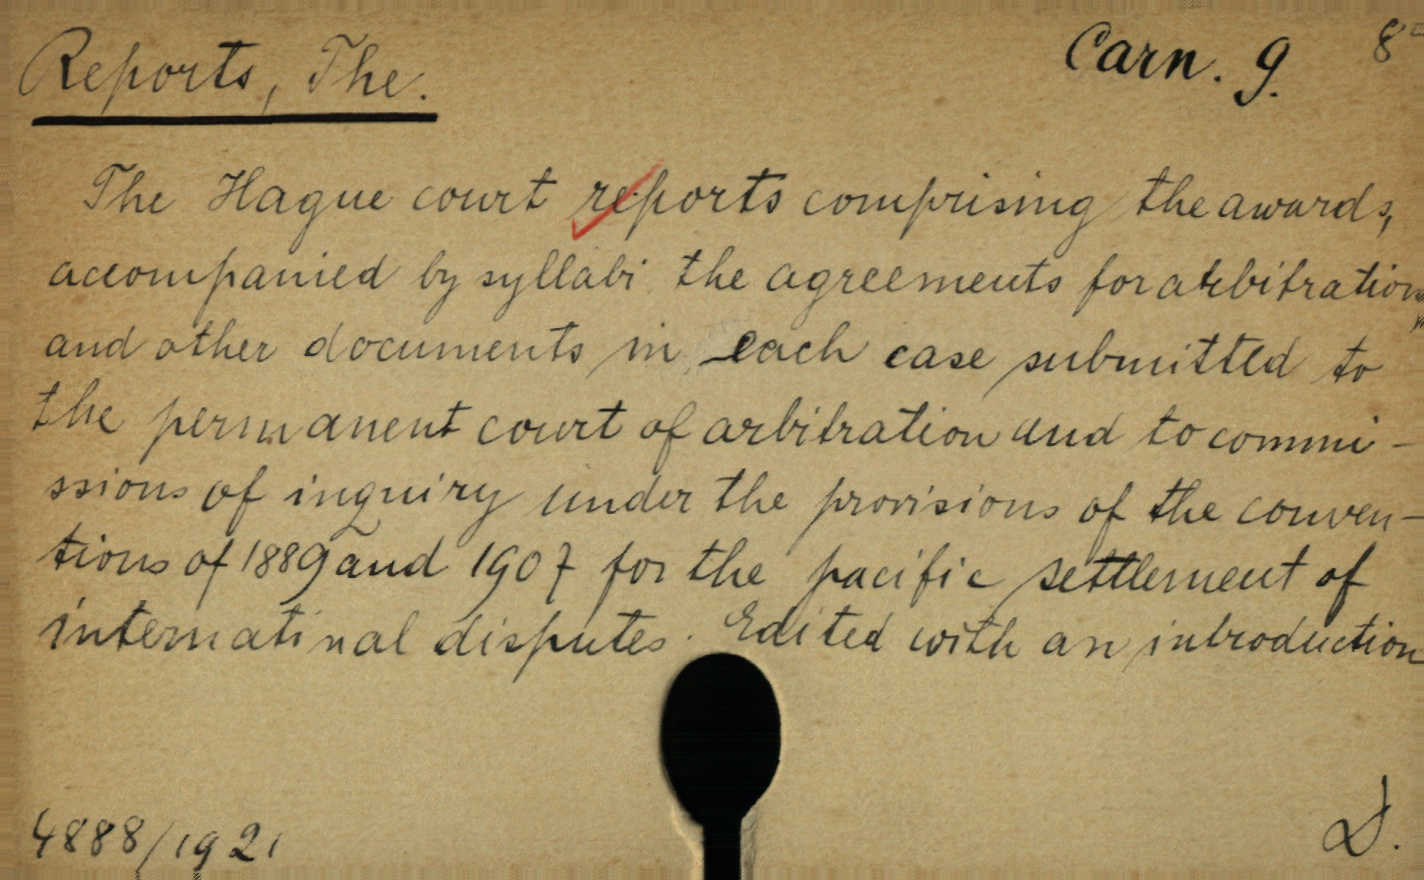 Reports, The.
Carn. g. 8°
The Hague court reports comprising the awards,
accompanied by syllabi the agreements for arbitration
and other documents in each case submitted to
the permanent court of arbitration and to commi-
ssions of inquiry under the provisions of the conven-
tions of 1889 and 1907 for the pacific settlement of
internatinal disputes. Edited with an introduction
4888/1921
D.